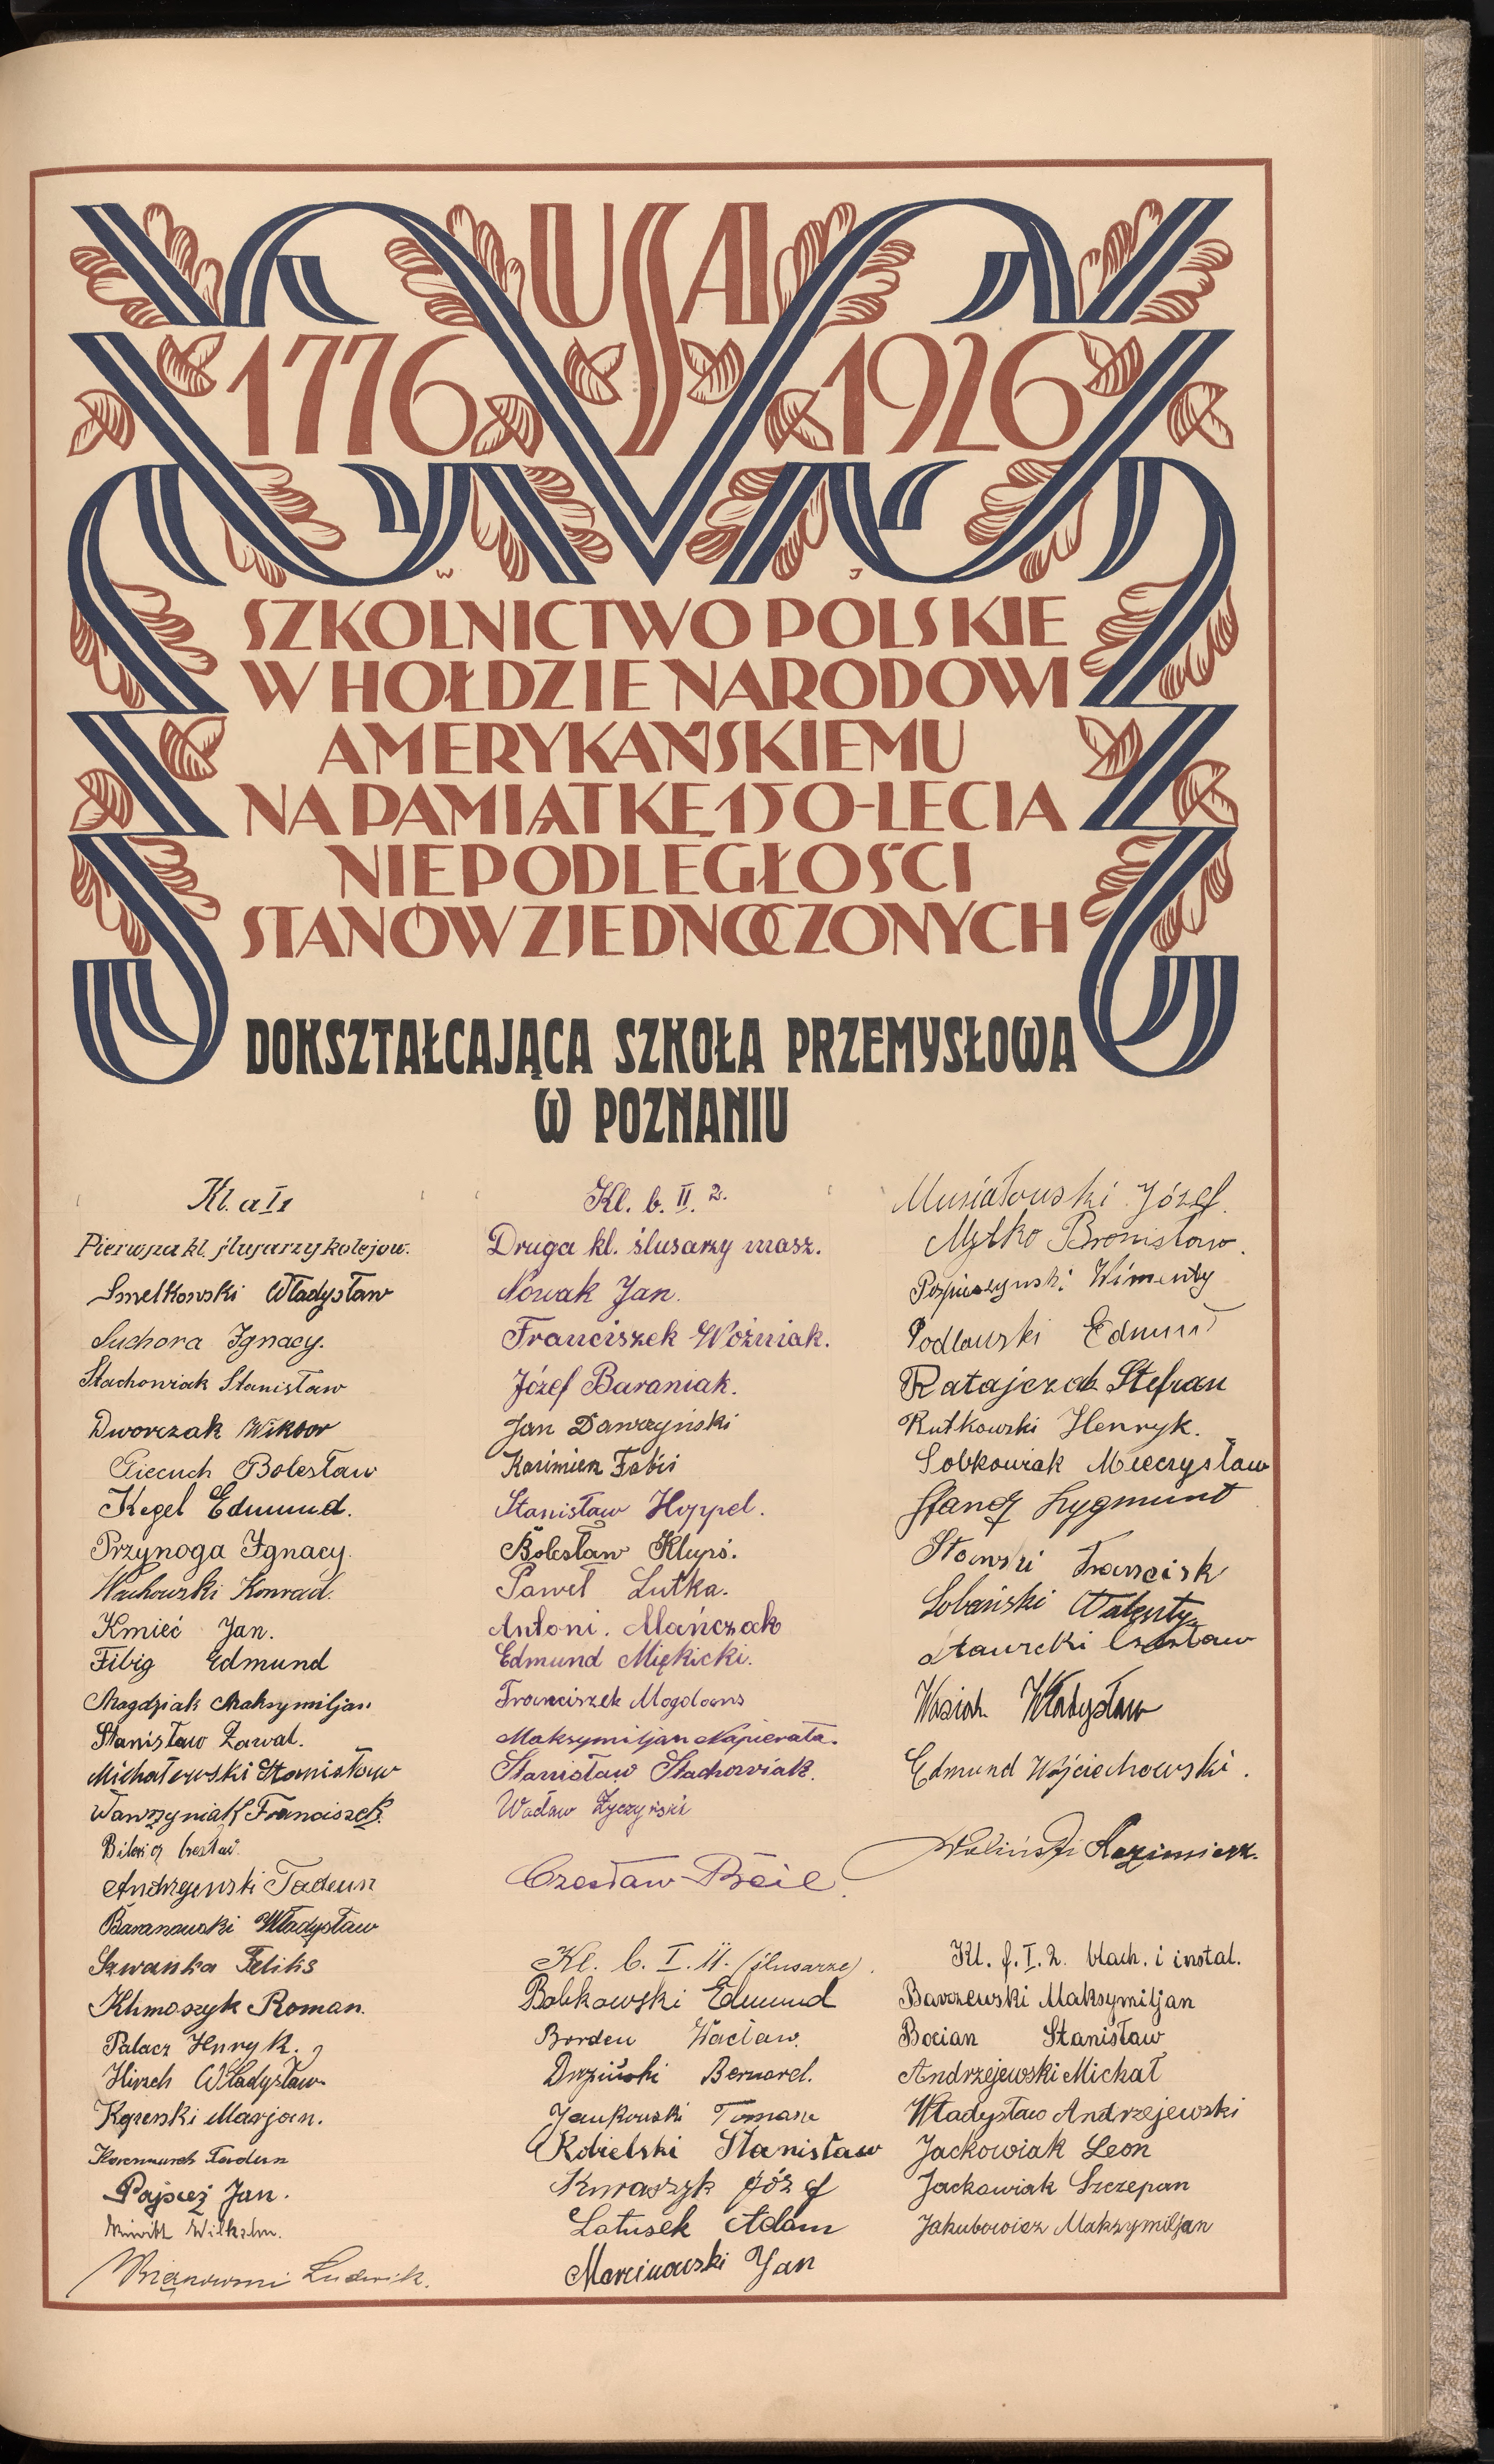 USA
1776 1926
W J
SZKOLNICTWO POLSKIE
W HOŁDZIE NARODOWI
AMERYKAŃSKIEMU
NA PAMIĄTKĘ 150-LECIA
NIEPODLEGŁOŚCI
STANÓW ZJEDNOCZONYCH
DOKSZTAŁCAJĄCA SZKOŁA PRZEMYSŁOWA
W POZNANIU
Kl. a I 1
Pierwsza kl. ślusarzy kolejow.
Smelkowski Władysław
Suchora Ignacy.
Stachowiak Stanisław
Dworczak Wiktor
Piecuch Bolesław
Kegel Edmund.
Przynoga Ignacy.
Wachowski Konrad.
Kmieć Jan.
Fibig Edmund
Magdziak Maksymiljan
Stanisław Zawal.
Michałowski Stanisław
Wawrzyniak Franciszek.
Andrzejewski Tadeusz
Baranowski Władysław
Szwanka Feliks
Khmoszyk Roman.
Palacz Henryk.
Hirsch Władysław
Marjan.
Pajsceż Jan.
Ludwik.
Kl. b. II. 2.
Druga kl. ślusarzy masz.
Nowak Jan.
Franciszek Woźniak.
Józef Baraniak.
Jan Dawrzyński
Kazimierz Fabiś
Stanisław Hoppel.
Bolesław Klupś.
Paweł Lutka.
Antoni. Mańczak
Edmund Miękicki.
Franciszek Mogdans
Maksymiljan Napierała.
Stanisław Stachowiak.
Wacław Życzyński
Czesław Beil.
Kl. b. I. 4. (ślusarze).
Bobkowski Edmund
Borden Wacław.
Bernard.
Jankowski Tomasz
Kobielski Stanisław
Krwaszyk Józef
Latusek Adam
Marcinowski Jan
Musiałowski Józef.
Mytko Bronisław.
Podlewski Edmund
Ratajczak Stefan
Rutkowski Henryk.
Sobkowiak Mieczysław
Zygmunt
Franciszk
Sobański Walenty
Stawecki Czesław
Wasiak Władysław
Edmund Wojciechowski.
Woliński Kazimierz.
Kl. f. I. 2. blach. i instal.
Barzewski Maksymiljan
Bocian Stanisław
Andrzejewski Michał
Władysław Andrzejewski
Jackowiak Leon
Jackowiak Szczepan
Jakubowicz Maksymiljan